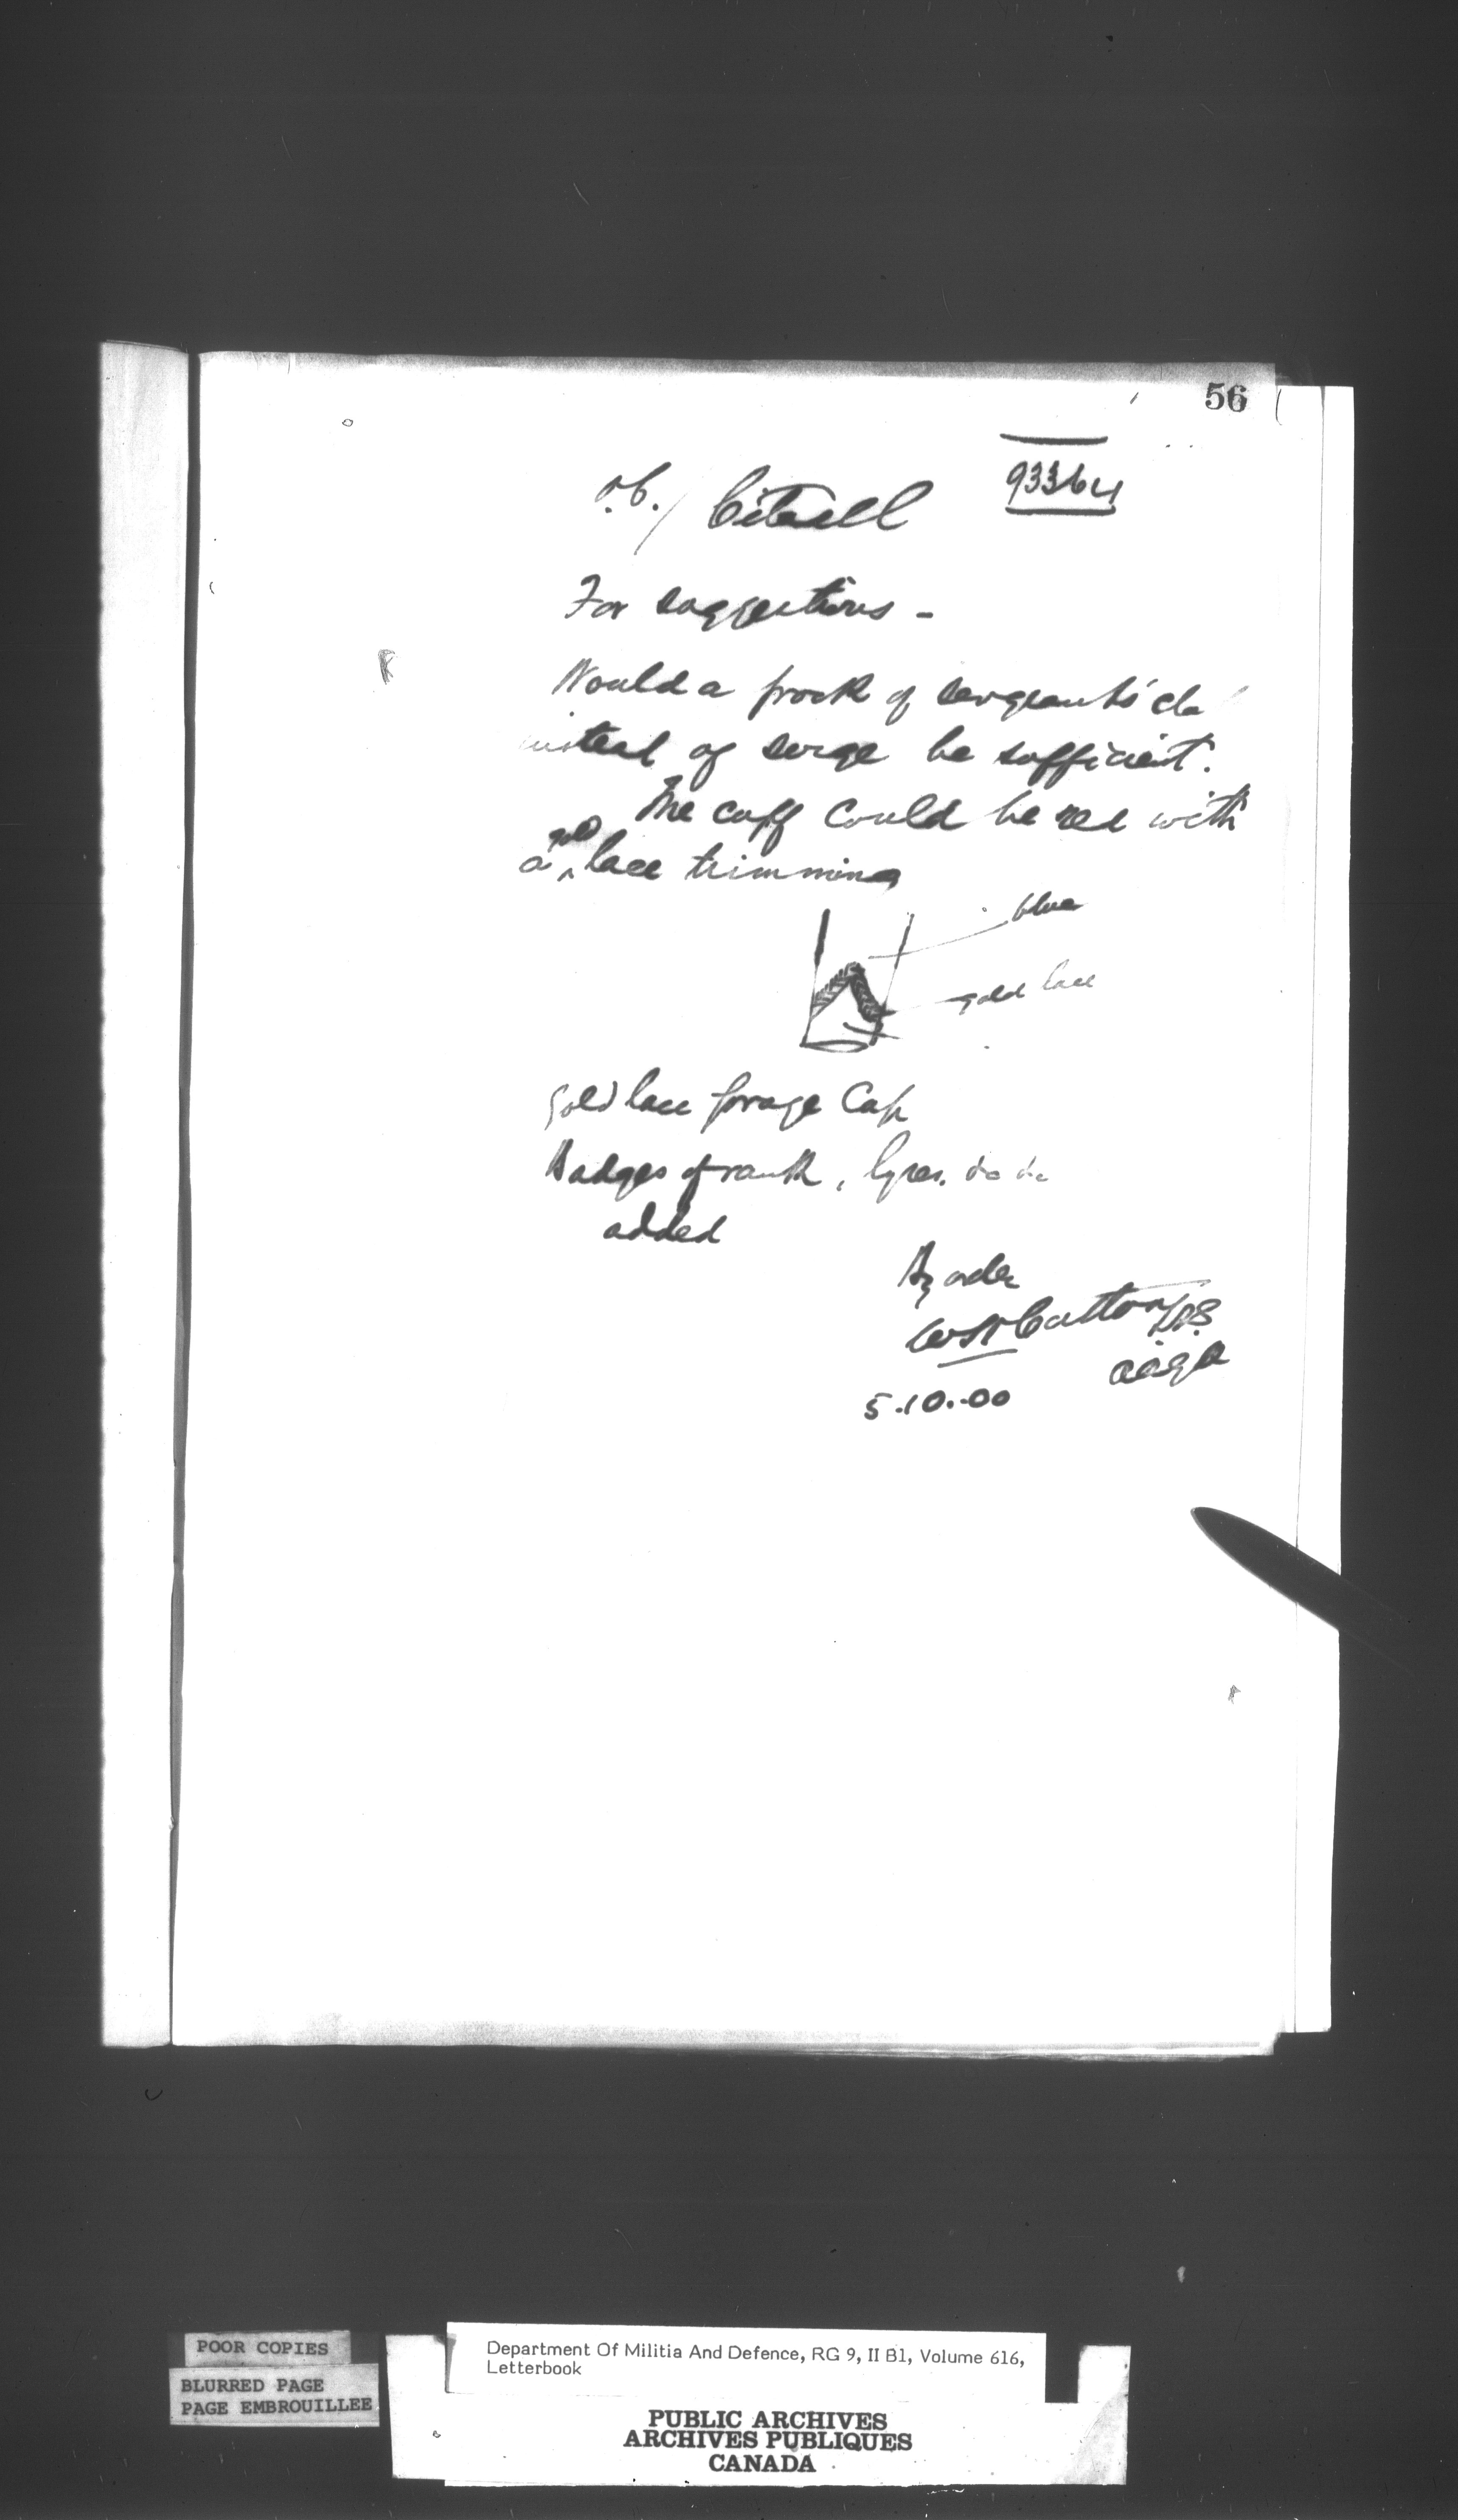 56
93364
O.C. / Citadel
For suggestions -
Would a frock of sergeants' clo
instead of serge be sufficient.
The cuff could be red with
a gold lace trimming
blue
gold lace
gold lace forage Cap
Badges of rank, lyres. do do
added
By order
5.10.00
POOR COPIES
BLURRED PAGE
PAGE EMBROUILLEE
Department Of Militia And Defence, RG 9, II B1, Volume 616,
Letterbook
PUBLIC ARCHIVES
ARCHIVES PUBLIQUES
CANADA